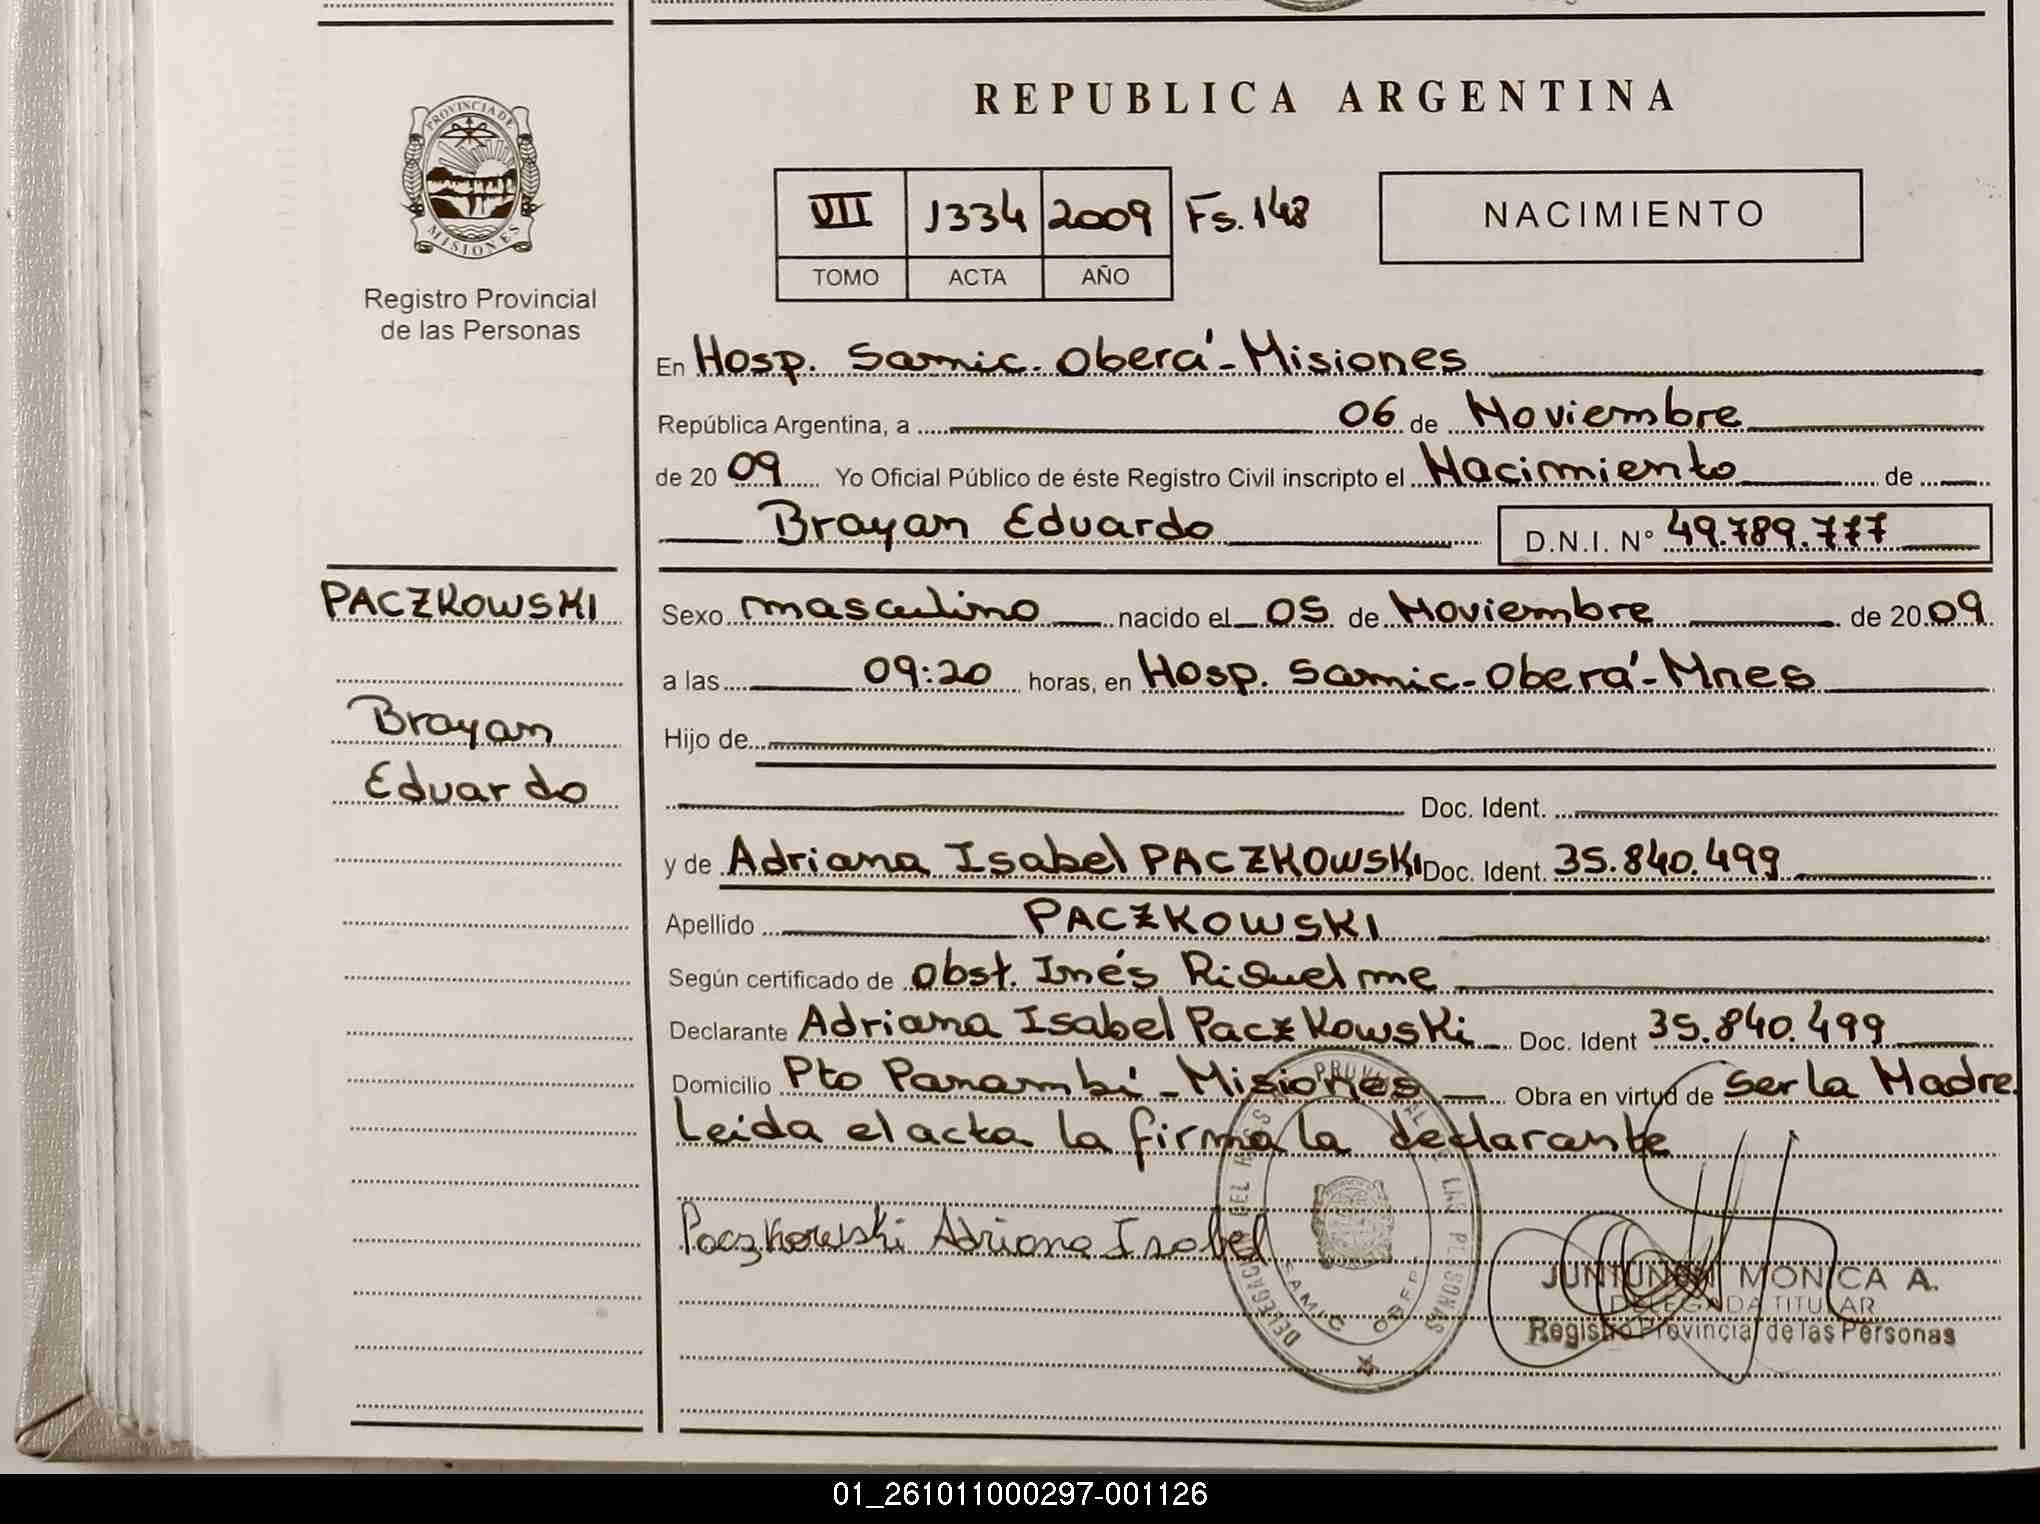 PROVINCIA DE
MISIONES
Registro Provincial
de las Personas
REPUBLICA ARGENTINA
VII 1334 2009 Fs. 148
TOMO ACTA AÑO
NACIMIENTO
En Hosp. Samic. Oberá - Misiones
República Argentina, a 06 de Noviembre
de 20 09 Yo Oficial Público de éste Registro Civil inscripto el Nacimiento de
Brayan Eduardo D.N.I. N° 49.789.777
PACZKOWSKI
Brayan
Eduardo
Sexo masculino nacido el 05 de Noviembre de 20 09
a las 09:20 horas, en Hosp. Samic - Oberá - Mnes
Hijo de
Doc. Ident.
y de Adriana Isabel PACZKOWSKI Doc. Ident. 35.840.499
Apellido PACZKOWSKI
Según certificado de Obst. Inés Riquelme
Declarante Adriana Isabel Paczkowski Doc. Ident 35.840.499
Domicilio Pto Panambi - Misiones Obra en virtud de Ser la Madre
Leida el acta la firma la declarante
Paczkowski Adriana Isabel
MONICA A.
DELEGADA TITULAR
Registro Provincial de las Personas
01_261011000297-001126